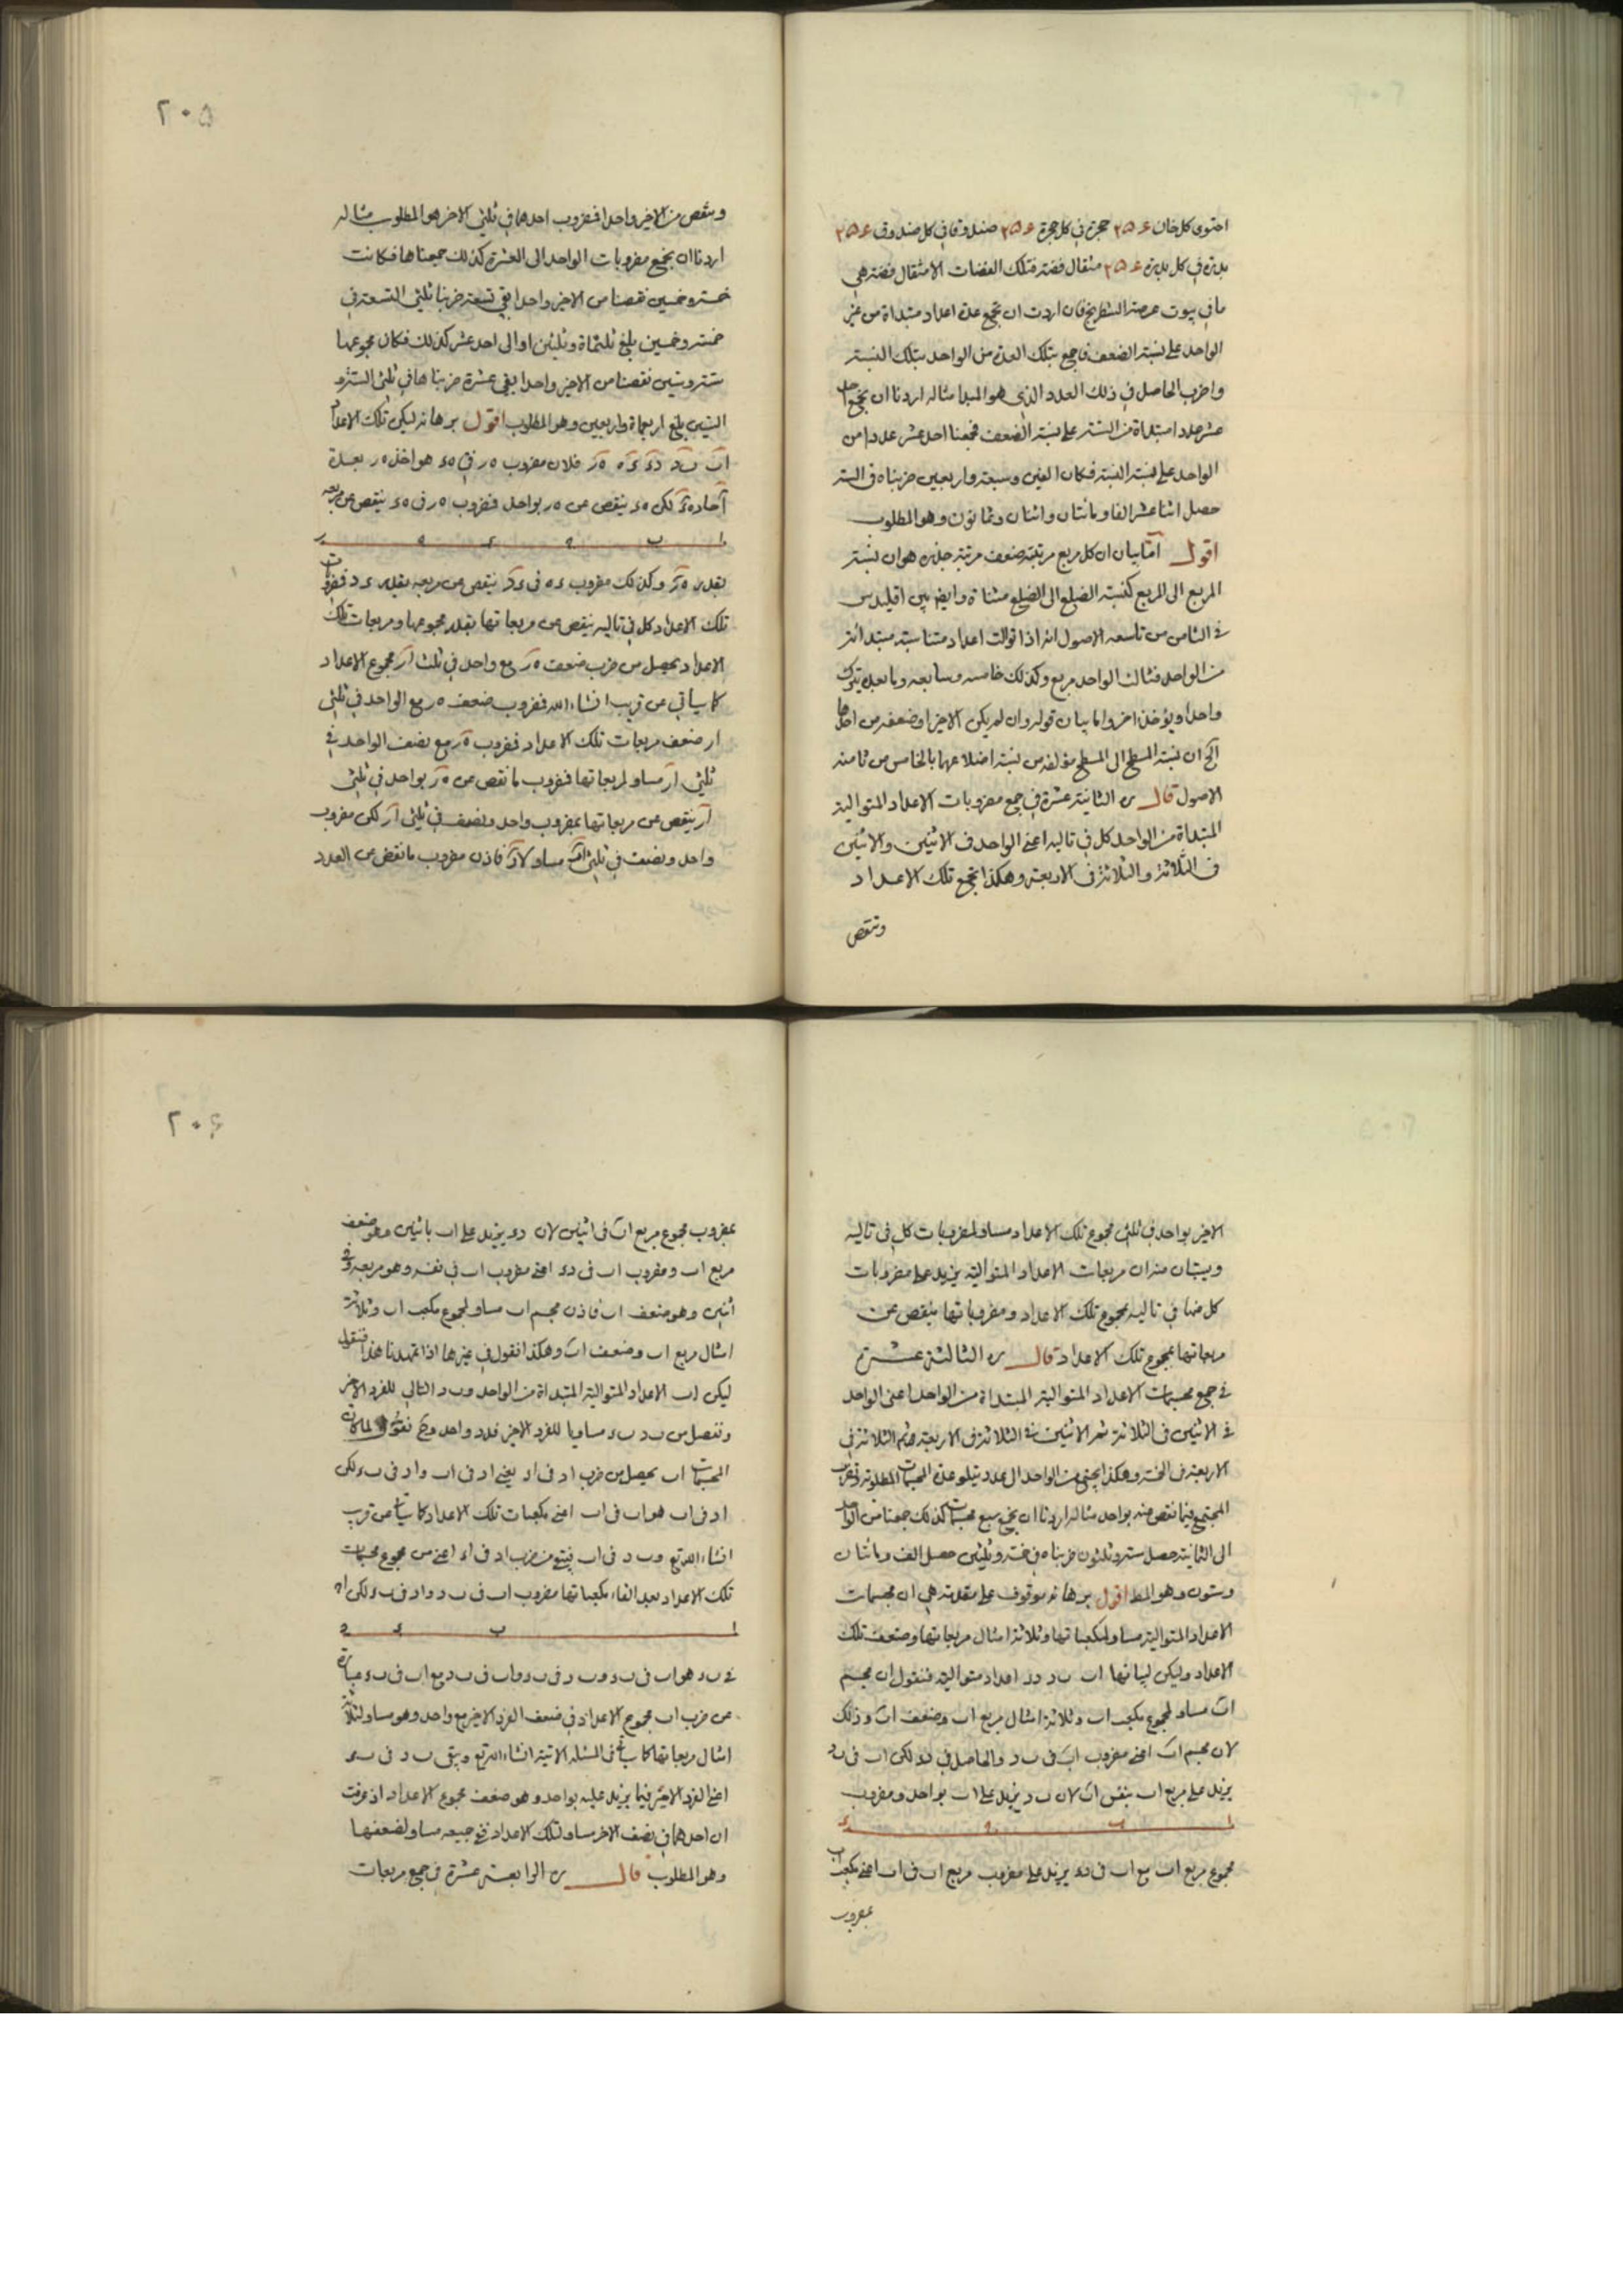 احتوى كل خان ٢٥۶ حجرة في كل حجرة ٢٥۶ صندوقا في كل صندوق ٢٥۶
بدرة في كل بدرة ٢٥۶ مثقال فضة فتلك الفضات الا مثقال فضة هي
ما في بيوت عرصة الشطرنج فان اردت ان تجمع عدة اعداد مبتداة من غير
الواحد على نسبة الضعف فاجمع بتلك العدة من الواحد بتلك النسبة
واضرب الحاصل في ذلك العدد الذي هو المبدا مثاله اردنا ان نجمع احد
عشر عددا مبتداة من الستة على نسبة الضعف فجمعنا احد عشر عددا من
الواحد على نسبة النسبة فكان الفين وسبعة واربعين ضربناه في الستة
حصل اثنا عشر الفا ومائتان واثنان وثمانون وهو المطلوب
اقول اما بيان ان كل مربع مرتبته ضعف مرتبة جذره هو ان نسبة
المربع الى المربع كنسبة الضلع الى الضلع مثناة وايضا بين اقليدس
في الثامن من تاسعه الاصول انه اذا توالت اعداد متناسبة مبتدائة
من الواحد فثالث الواحد مربع وكذلك خامسه وسابعه وما بعده يترك
واحد ويؤخذ اخر واما بيان قوله وان لم يكن الاخر اوضعفه من احدها
الخ ان نسبة المسطح الى المسطح مؤلفة من نسبة اضلاعهما بالخامس من ثامنه
الاصول قال ره الثانية عشرة في جمع مضروبات الاعداد المتوالية
المبتداة من الواحد كل في تاليه اعني الواحد في الاثنين والاثنين
في الثلاثة والثلاثة في الاربعة وهكذا تجمع تلك الاعداد
وتنقص
٢٠٥
وتنقص من الاخر واحدا فمضروب احدهما في ثلثي الاخر هو المطلوب مثاله
اردنا ان نجمع مضروبات الواحد الى العشرة كذلك جمعناها فكانت
خمسة وخمسين نقصنا من الاخير واحدا بقي تسعة ضربنا ثلثي التسعة في
خمسة وخمسين بلغ ثلثماة وثلثين او الى احد عشر كذلك فكان مجموعها
ستة وستين نقصنا من الاخير واحدا بقي عشرة ضربناها في ثلثي الستة و
الستين بلغ اربعماة واربعين وهو المطلوب اقول برهانه ليكن تلك الاعداد
اب ب د د ء ء ه ه ر فلان مضروب ه ر في ه ء هو اخذ ه ر بعدة
آحاد ه ء لكن ه ء ينقص عن ه ر بواحد فمضروب ه ر في ه ء ينقص عن مربعه
ا ب ه ء ه ر
بقدر ه ر وكذلك مضروب ء ه في ء د ينقص عن مربعه بقدر ء د فمضروبات
تلك الاعداد كل في تاليه ينقص عن مربعاتها بقدر مجموعها ومربعات تلك
الاعداد يحصل من ضرب ضعف ه ر مع واحد في ثلث ا ر مجموع الاعداد
كما سياتي عن قريب انشاءالله فمضروب ضعف ه ر مع الواحد في ثلثي
ا ر ضعف مربعات تلك الاعداد فمضروب ه ر مع نصف الواحد في
ثلثي ا ر مساو لمربعاتها فمضروب ما نقص عن ه ر بواحد في ثلثي
ا ر ينقص عن مربعاتها بمضروب واحد ونصف في ثلثي ا ر لكن مضروب
واحد ونصف في ثلثي ا ر مساو لا ر فاذن مضروب ما نقص عن العدد
الاخير بواحد في ثلثي مجموع تلك الاعداد مساو لمضروبات كل في تاليه
ويستبان منه ان مربعات الاعداد المتوالية يزيد على مضروبات
كل منها في تاليه بمجموع تلك الاعداد ومضروباتها ينقص عن
مربعاتها بمجموع تلك الاعداد قال ره الثالثة عشرة
في جمع مجسمات الاعداد المتوالية المبتداة من الواحد اعني الواحد
في الاثنين في الثلاثة ثم الاثنين في الثلاثة في الاربعة ثم الثلاثة في
الاربعة في الخمسة وهكذا يجتمع من الواحد الى عدد يتلو عدة المجسمات المطلوبة وتضرب
المجتمع فيما نقص منه بواحد مثاله اردنا ان نجمع سبع مجسمات كذلك جمعنا من الواحد
الى الثمانية حصل ستة وثلثون ضربناه في خمسة وثلثين حصل الف ومائتان
وستون وهو المط اقول برهانه موقوف على مقدمة هي ان مجسمات
الاعداد المتوالية مساو لمكعباتها وثلاثة امثال مربعاتها وضعف تلك
الاعداد وليكن لبيانها اب ب د د ء اعداد متوالية فنقول ان مجسم
اب مساو لمجموع مكعب اب وثلاثة امثال مربع اب وضعف اب وذلك
لان مجسم اب اعني مضروب اب في ب د والحاصل في د ء لكن اب في ب د
يزيد على مربع اب بنفس اب لان ب د يزيد على اب بواحد ومضروب
ا ب ه ء
مجموع مربع اب مع اب في د ء يزيد على مضروب مربع اب في اب اعني مكعب اب
بمضروب
٢٠۶
بمضروب مجموع مربع اب في اثنين لان د ء يزيد على اب باثنين وهو ضعف
مربع اب ومضروب اب في د ء اعني مضروب اب في نفسه وهو مربعه وفي
اثنين وهو ضعف اب فاذن مجسم اب مساو لمجموع مكعب اب وثلاثة
امثال مربع اب وضعف اب وهكذا نقول في غيرها اذا تمهد هذا فنقول
ليكن اب الاعداد المتوالية المبتداة من الواحد وب د التالي للفرد الاخر
ونفصل من ب د ب ء مساويا للفرد الاخير فء د واحد وح نقول لما كان
المجسمات اب يحصل من ضرب ا د في ا ء يعني ا د في اب وا د في ب ء لكن
ا د في اب هو اب في اب اعني مكعبات تلك الاعداد كما سياتي عن قريب
انشاءالله تع وب د في اب فيبقى من ضرب ا د في ا ء اعني من مجموع مجسمات
تلك الاعداد بعد القاء مكعباتها مضروب اب في ب د وا د في ب ء لكن ا د
ا ب ء د
في ب ء هو اب في ب ء وب د في ب ء واب في ب د مع اب في ب ء عبارة
عن ضرب اب مجموع الاعداد في ضعف الفرد الاخير مع واحد وهو مساو لثلاثة
امثال مربعاتها كما سياتي في المسئلة الاتية انشاءالله تع ويبقى ب د في ب ء
اعني الفرد الاخير فيما يزيد عليه بواحد وهو ضعف مجموع الاعداد اذ عرفت
ان احدهما في نصف الاخر مساو لتلك الاعداد ففي جميعه مساو لضعفها
وهو المطلوب قال ره الرابعة عشرة في جمع مربعات